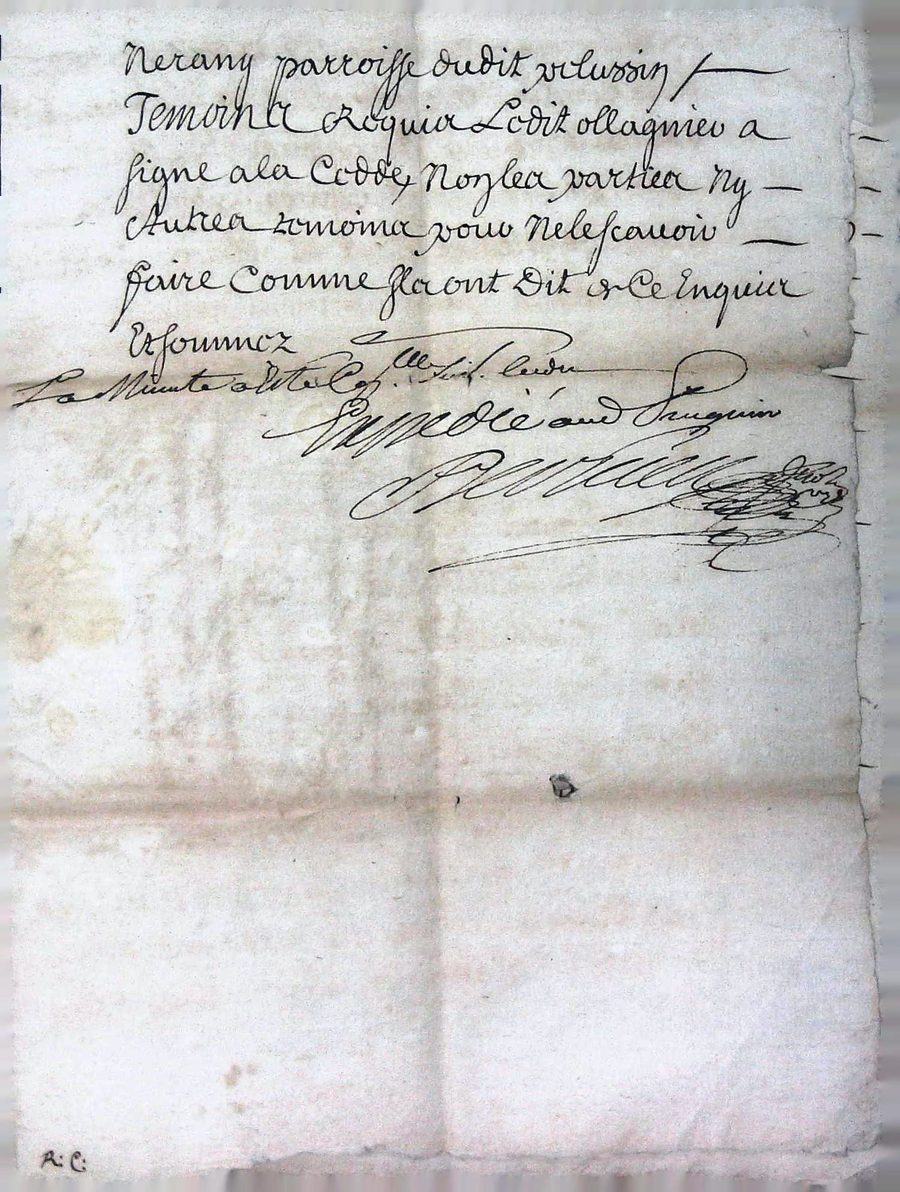 Nerany parroisse dudit pelussin
Temoins Requis Ledit ollagnier a
signe ala Cedde, Non les parties Ny
Autres temoins pour Ne lescavoir
faire Comme Ils ont Dit de Ce Enquis
Et sommez
La Minute a Esté
Expedié aud Pruguin
R: C: